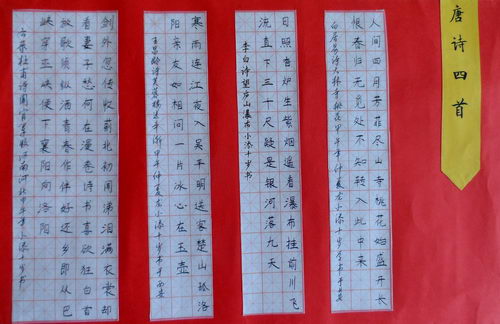 唐诗四首
人间四月芳菲尽山寺桃花始盛开长
恨春归无觅处不知转入此中来
白居易诗大林寺桃花甲午年仲夏小添十岁书于西安
日照香炉生紫烟遥看瀑布挂前川飞
流直下三千尺疑是银河落九天
李白诗望庐山瀑布小添十岁书
寒雨连江夜入吴平明送客楚山孤洛
阳亲友如相问一片冰心在玉壶
王昌龄诗芙蓉楼送辛渐甲午年仲夏小添十岁书于西安
剑外忽传收蓟北初闻涕泪满衣裳却
看妻子愁何在漫卷诗书喜欲狂白首
放歌须纵酒青春作伴好还乡即从巴
峡穿巫峡便下襄阳向洛阳
杜甫诗闻官军收河南河北甲午年夏小添十岁书